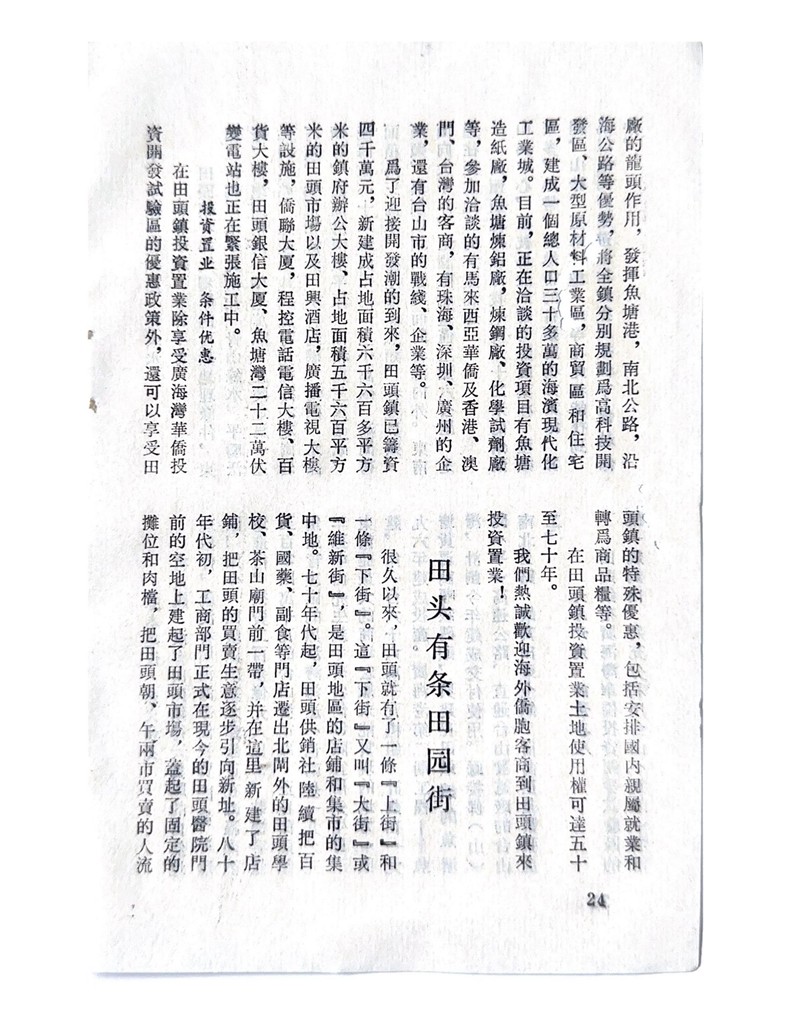 廠的龍頭作用，發揮魚塘港，南北公路，沿
海公路等優勢，將全鎮分別規劃爲高科技開
發區，大型原材料工業區，商貿區和住宅
區，建成一個總人口三十多萬的海濱現代化
工業城。目前，正在洽談的投資項目有魚塘
造紙廠，魚塘煉鋁廠，煉鋼廠、化學試劑廠
等，參加洽談的有馬來西亞華僑及香港、澳
門、台灣的客商，有珠海、深圳、廣州的企
業，還有台山市的戰綫、企業等。
爲了迎接開發潮的到來，田頭鎮已籌資
四千萬元，新建成占地面積六千六百多平方
米的鎮府辦公大樓、占地面積五千六百平方
米的田頭市場以及田興酒店，廣播電視大樓
等設施，僑聯大厦，程控電話電信大樓、百
貨大樓，田頭銀信大厦、魚塘灣二十二萬伏
變電站也正在緊張施工中。
投資置业 条件优惠
在田頭鎮投資置業除享受廣海灣華僑投
資開發試驗區的優惠政策外，還可以享受田
頭鎮的特殊優惠，包括安排國内親屬就業和
轉爲商品糧等。
在田頭鎮投資置業土地使用權可達五十
至七十年。
我們熱誠歡迎海外僑胞客商到田頭鎮來
投資置業！
田头有条田园街
很久以來，田頭就有了一條『上街』和
一條『下街』。這『下街』又叫『大街』或
『維新街』，是田頭地區的店鋪和集市的集
中地。七十年代起，田頭供銷社陸續把百
貨、國藥、副食等門店遷出北閘外的田頭學
校、茶山廟門前一帶，并在這里新建了店
鋪，把田頭的買賣生意逐步引向新址。八十
年代初，工商部門正式在現今的田頭醫院門
前的空地上建起了田頭市場，蓋起了固定的
攤位和肉檔，把田頭朝、午兩市買賣的人流
24